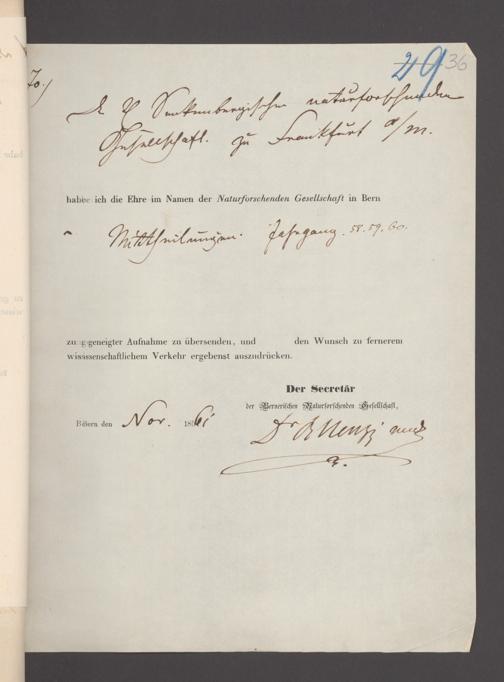 70.)
29 36
Senkenbergischen naturforschenden
Gesellschaft. zu Frankfurt a/m.
habe ich die Ehre im Namen der Naturforschenden Gesellschaft in Bern
Mittheilungen. Jahrgang. 58. 59. 60.
zu geneigter Aufnahme zu übersenden, und den Wunsch zu fernerem
wissenschaftlichem Verkehr ergebenst auszudrücken.
Der Secretär
der Bernerischen Naturforschenden Gesellschaft,
Bern den Nov. 1861
Dr